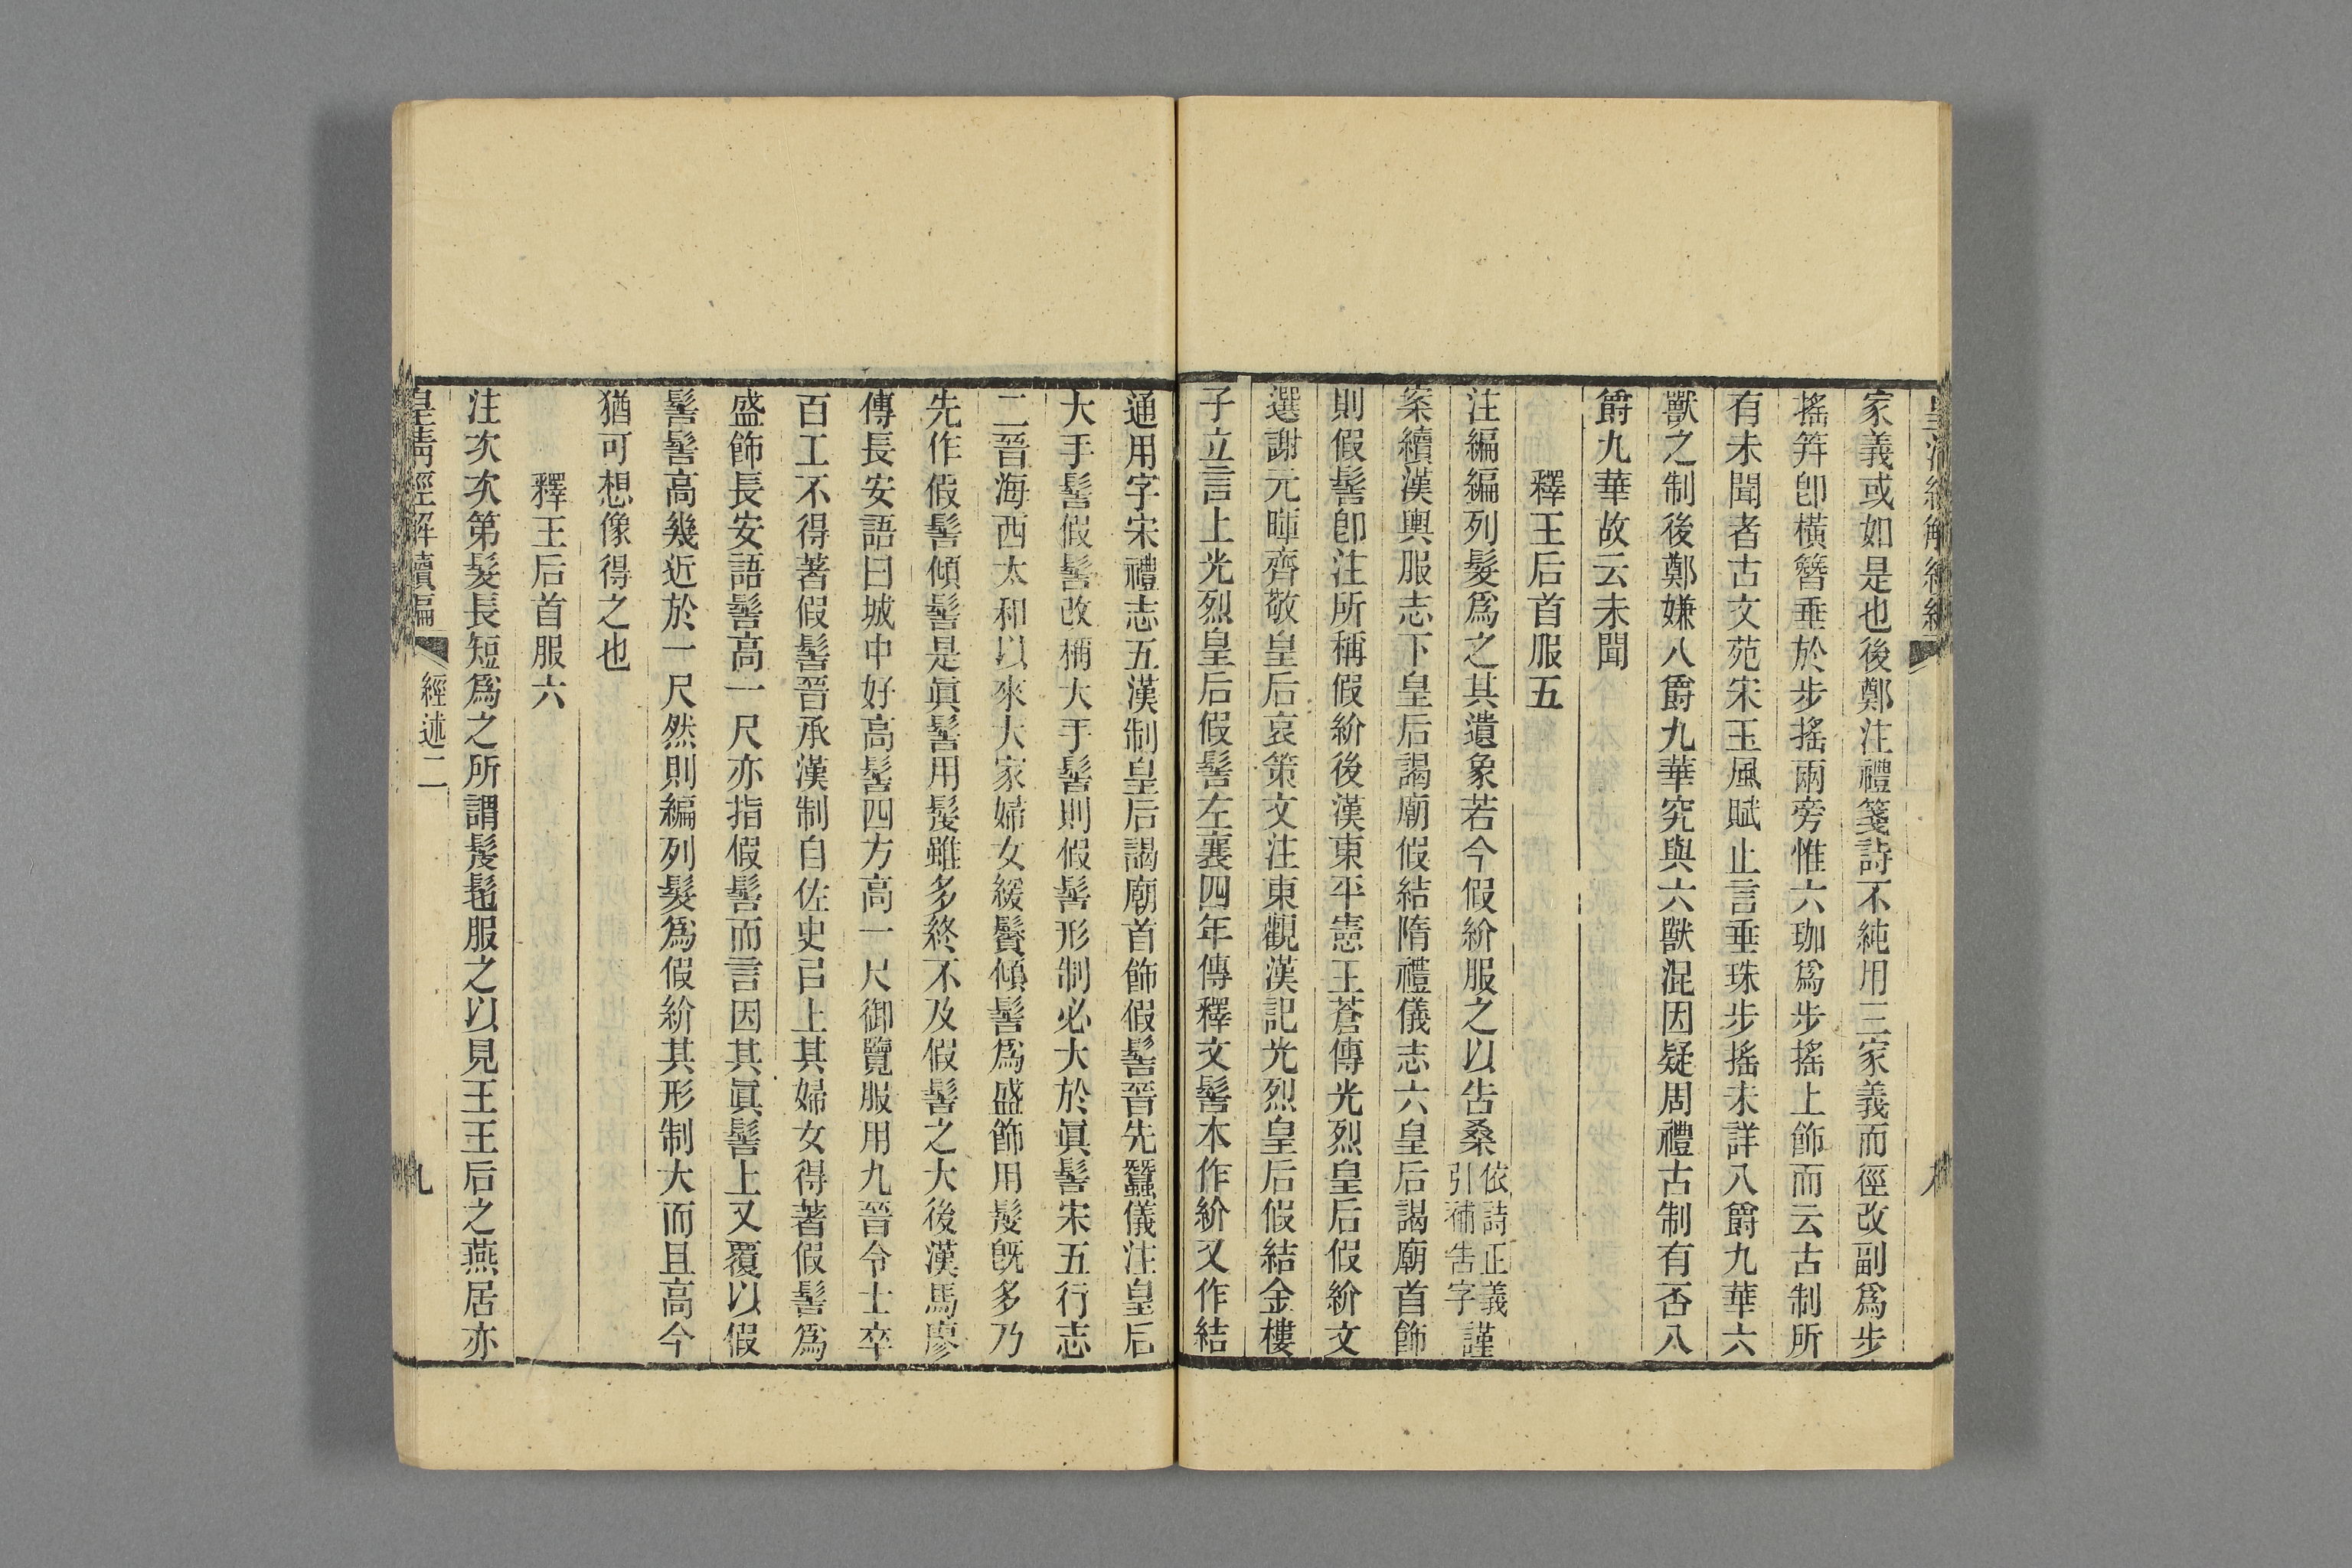 家義或如是也後鄭注禮箋詩不純用三家義而徑改副爲步
搖笄卽橫簪垂於步搖兩旁惟六珈爲步搖上飾而云古制所
有未聞者古文苑宋玉風賦止言垂珠步搖未詳八爵九華六
獸之制後鄭嫌八爵九華究與六獸混因疑周禮古制有否八
爵九華故云未聞
釋王后首服五
注編編列髮爲之其遺象若今假紒服之以告桑依詩正義引補告字謹
案續漢輿服志下皇后謁廟假結隋禮儀志六皇后謁廟首飾
則假髻卽注所稱假紒後漢東平憲王蒼傳光烈皇后假紒文
選謝元暉齊敬皇后哀策文注東觀漢記光烈皇后假結金樓
子立言上光烈皇后假髻左襄四年傳釋文髻本作紒又作結
通用字宋禮志五漢制皇后謁廟首飾假髻晉先蠶儀注皇后
大手髻假髻改稱大手髻則假髻形制必大於眞髻宋五行志
二晉海西太和以來大家婦女緩鬢傾髻爲盛飾用髮旣多乃
先作假髻傾髻是眞髻用髮雖多終不及假髻之大後漢馬廖
傳長安語曰城中好高髻四方高一尺御覽服用九晉令士卒
百工不得著假髻晉承漢制自佐史㠯上其婦女得著假髻爲
盛飾長安語髻高一尺亦指假髻而言因其眞髻上又覆以假
髻髻高幾近於一尺然則編列髮爲假紒其形制大而且高今
猶可想像得之也
釋王后首服六
注次次第髮長短爲之所謂髲髢服之以見王王后之燕居亦
皇清經解續編
經述二
九